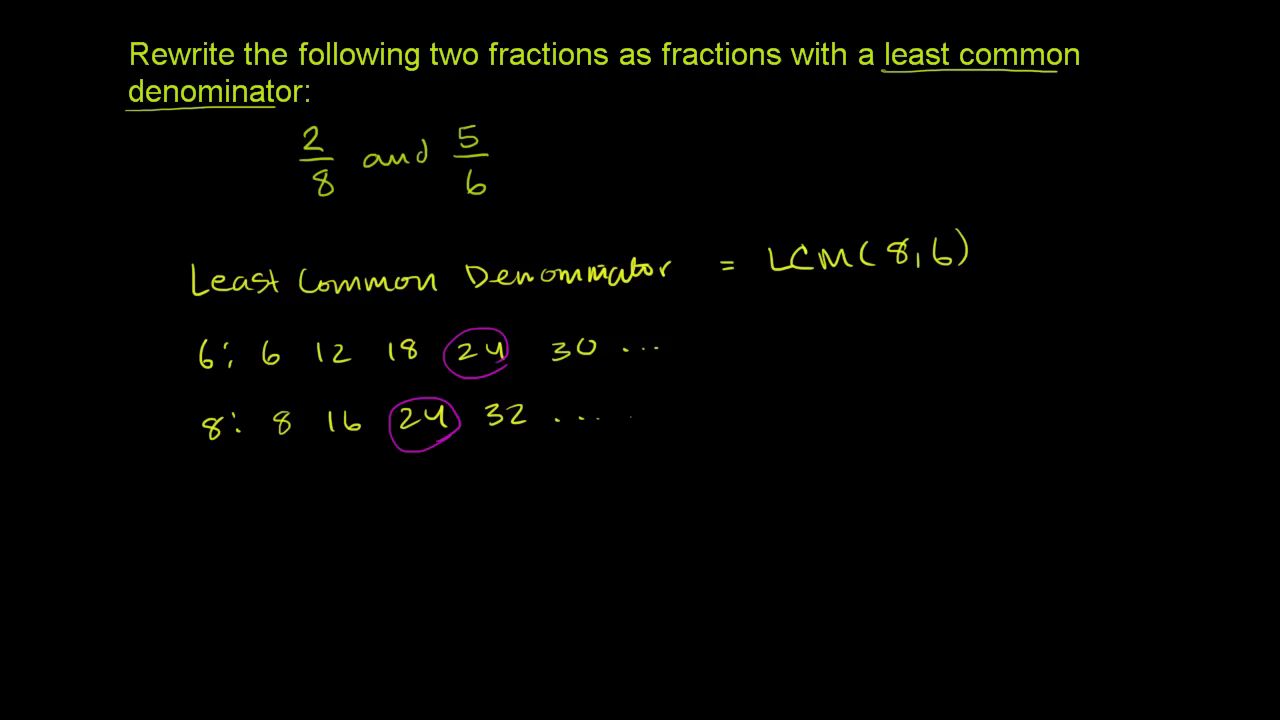 Rewrite the following two fractions as fractions with a least common
denominator:
2/8 and 5/6
Least Common Denominator = LCM(8,6)
6: 6 12 18 24 30 ...
8: 8 16 24 32 ....